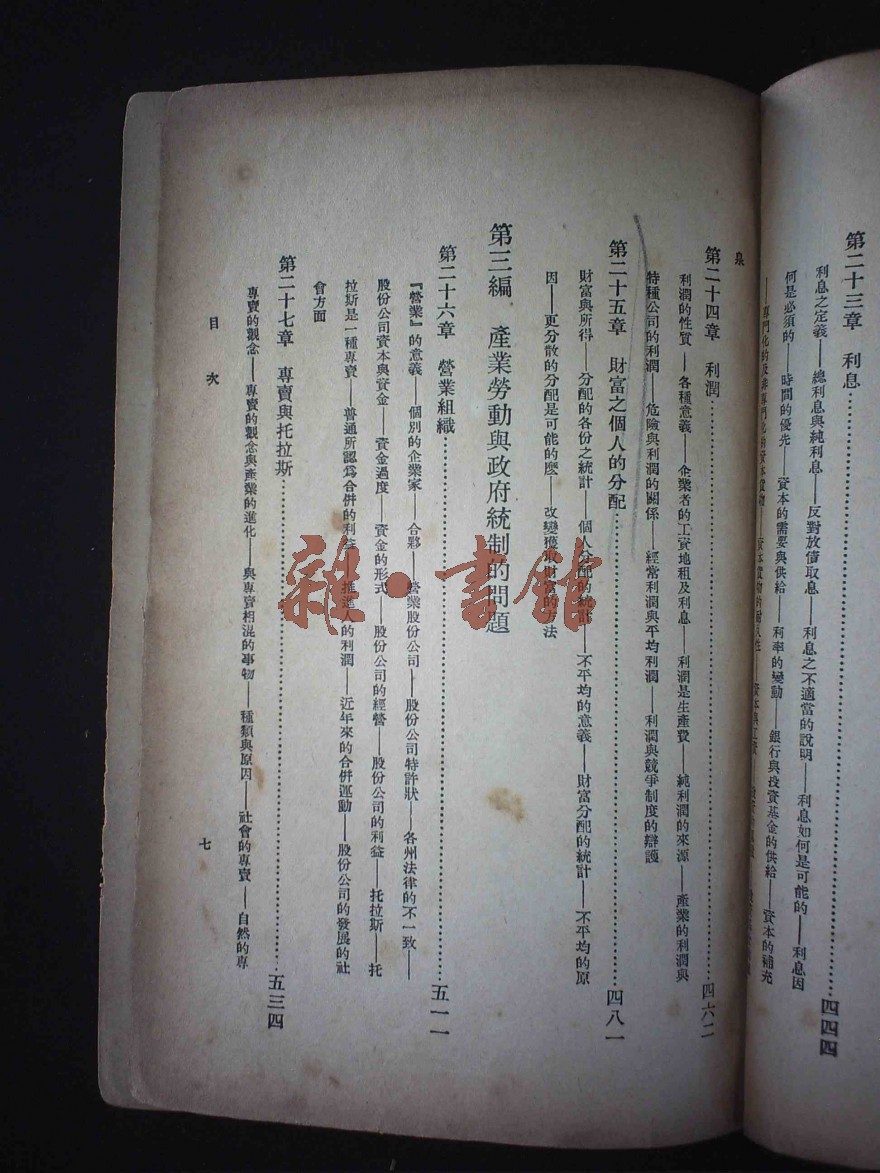 第二十三章　利息……四四四
利息之定義——總利息與純利息——反對放債取息——利息之不適當的說明——利息如何是可能的——利息因
何是必須的——時間的優先——資本的需要與供給——利率的變動——銀行與投資基金的供給——資本的補充
——專門化的及非專門化的資本貨物——資本貨物的耐久性
泉
第二十四章　利潤……四六二
利潤的性質——各種意義——企業者的工資地租及利息——利潤是生產費——純利潤的來源——產業的利潤與
特種公司的利潤——危險與利潤的關係——經常利潤與平均利潤——利潤與競爭制度的辯護
第二十五章　財富之個人的分配……四八一
財富與所得——分配的各份之統計——個人分配的統計——不平均的意義——財富分配的統計——不平均的原
因——更分散的分配是可能的麼——改變獲取財富的方法
第三編　產業勞動與政府統制的問題
第二十六章　營業組織……五一一
『營業』的意義——個別的企業家——合夥——營業股份公司——股份公司特許狀——各州法律的不一致——
股份公司資本與資金——資金過度——資金的形式——股份公司的經營——股份公司的利益——托拉斯——托
拉斯是一種專賣——普通所認爲合併的利益——推進人的利潤——近年來的合併運動——股份公司的發展的社
會方面
第二十七章　專賣與托拉斯……五三四
專賣的觀念——專賣的觀念與產業的進化——與專賣相混的事物——種類與原因——社會的專賣——自然的專
目次
七
雜·書館